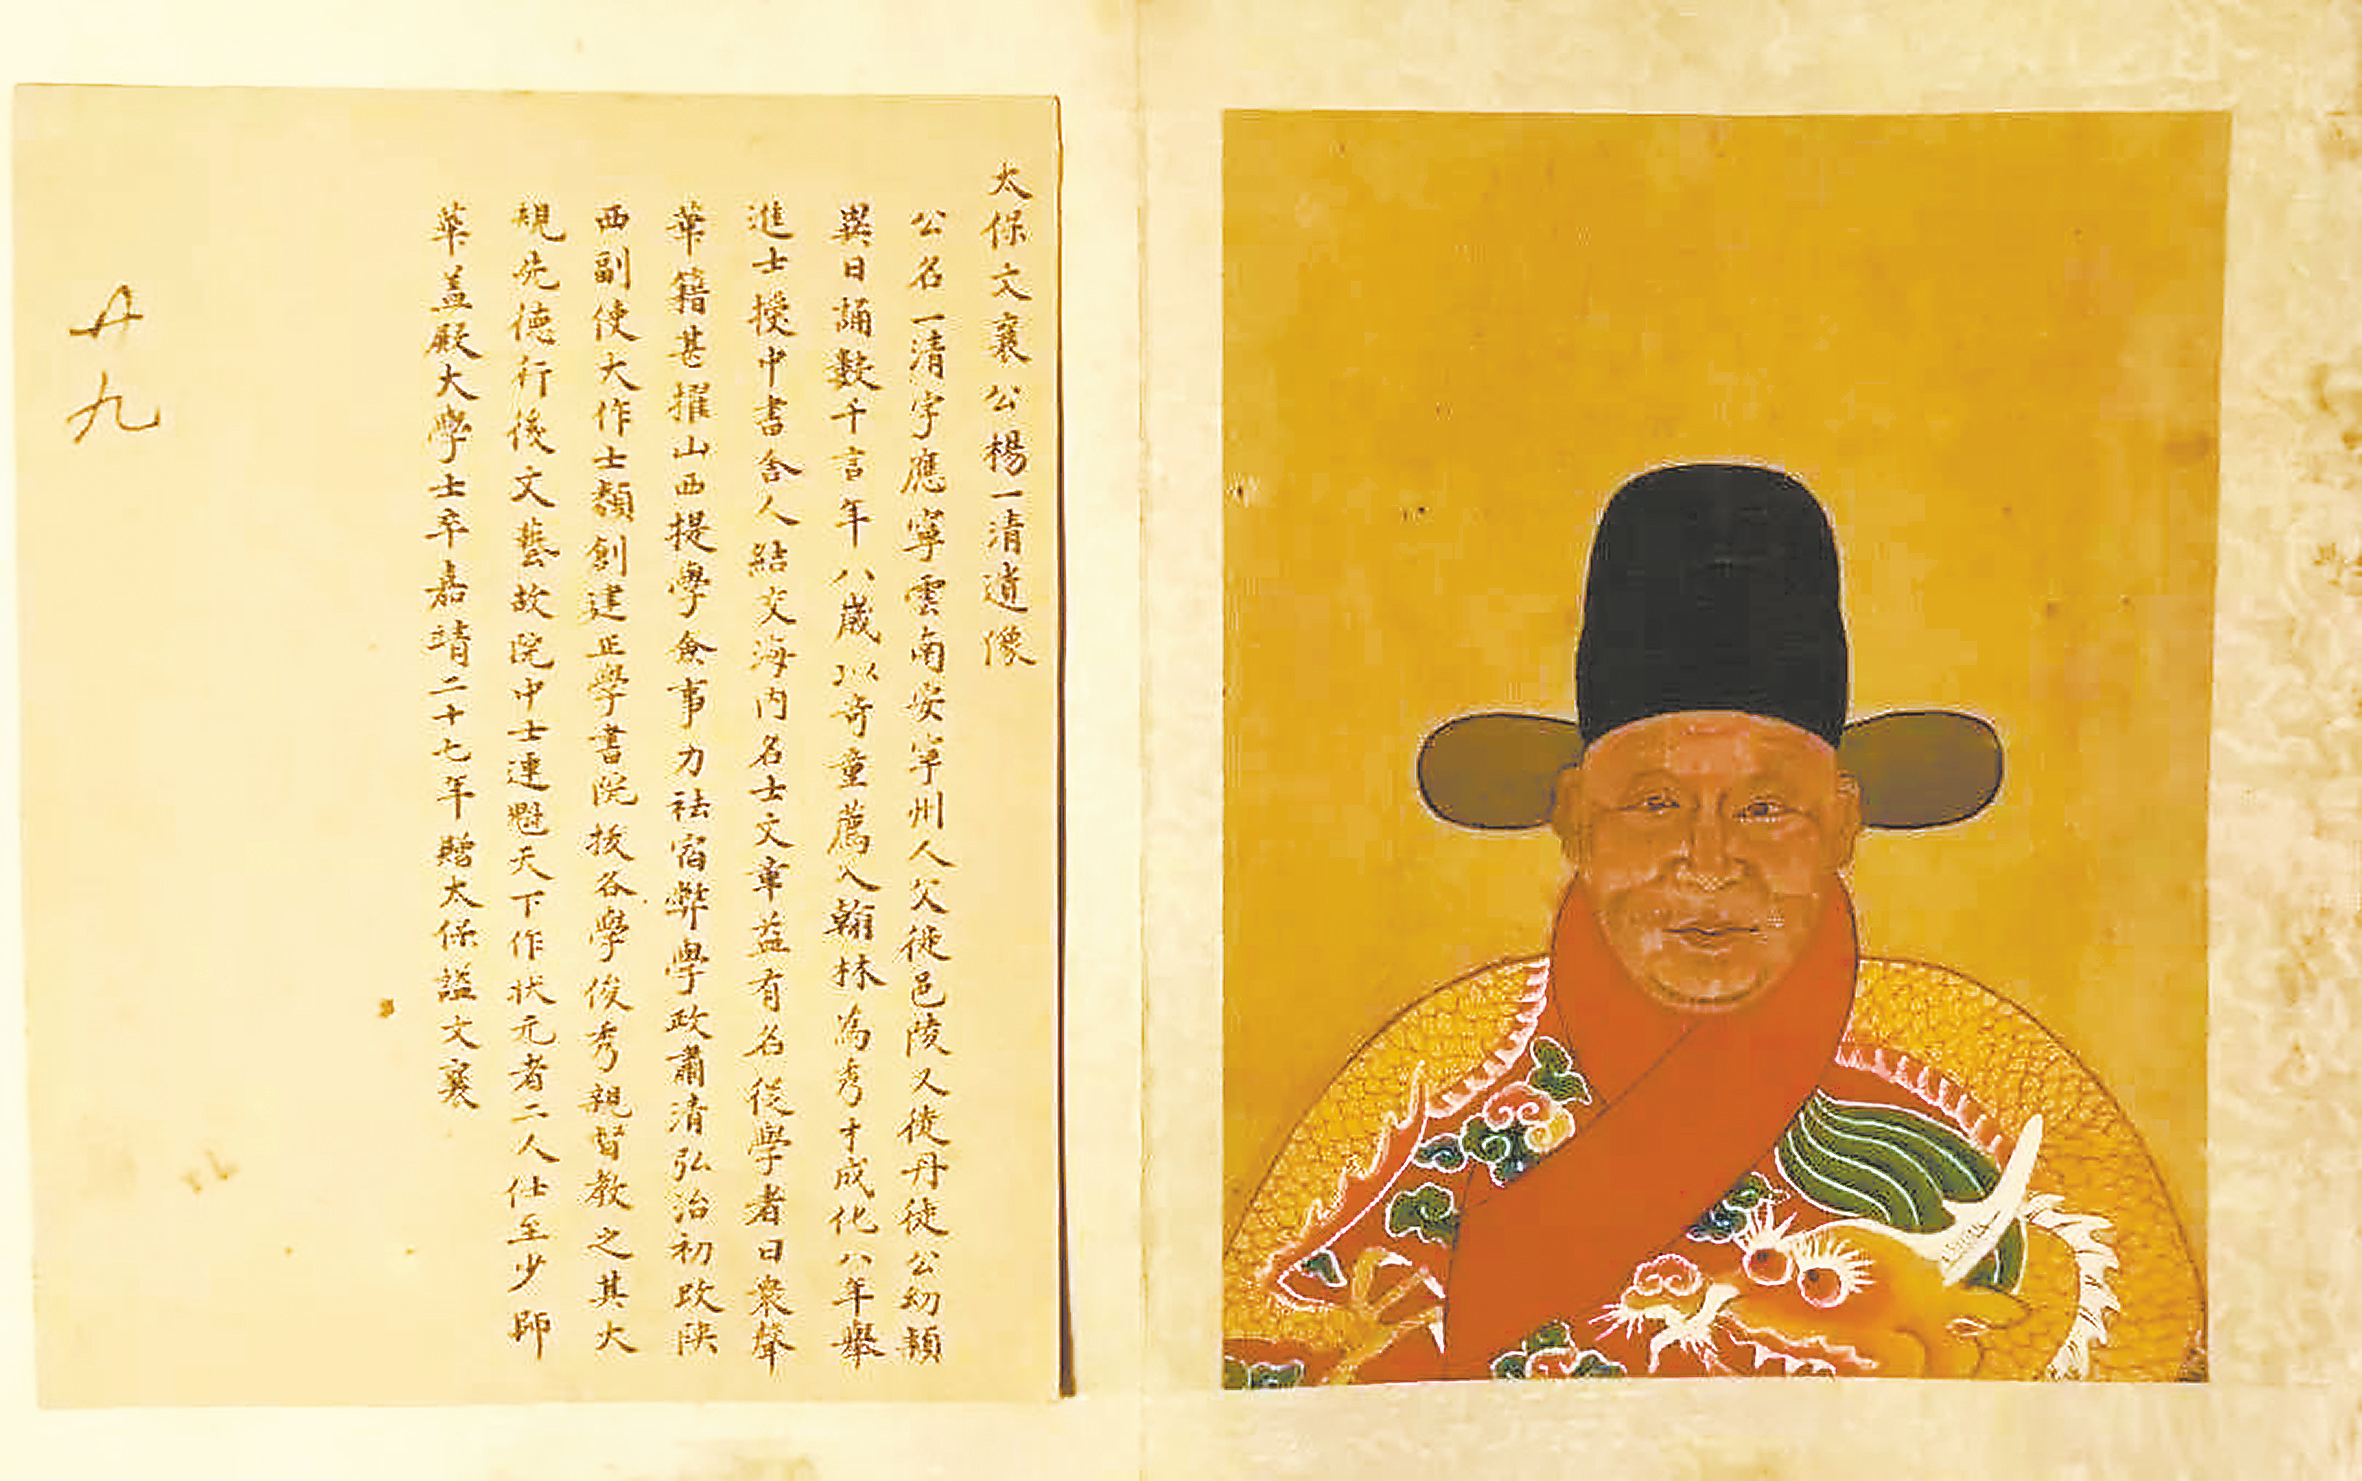 太保文襄公楊一清遺像
公名一清字應寧雲南安寧州人父徙邑陵又徙丹徒公幼穎
異日誦數千言年八歲以奇童薦入翰林為秀才成化八年舉
進士授中書舍人結交海内名士文章益有名從學者日衆聲
華籍甚擢山西提學僉事力祛宿弊學政肅清弘治初改陝
西副使大作士類創建正學書院拔各學俊秀親督教之其大
規先德行後文藝故院中士連魁天下作状元者二人仕至少師
華盖殿大學士卒嘉靖二十七年贈太保謚文襄
廿九